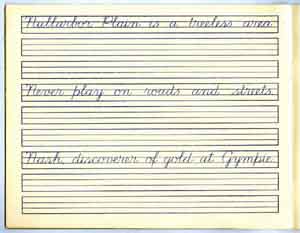 Nullarbor Plain is a treeless area
Never play on roads and streets.
Nash, discoverer of gold at Gympie.